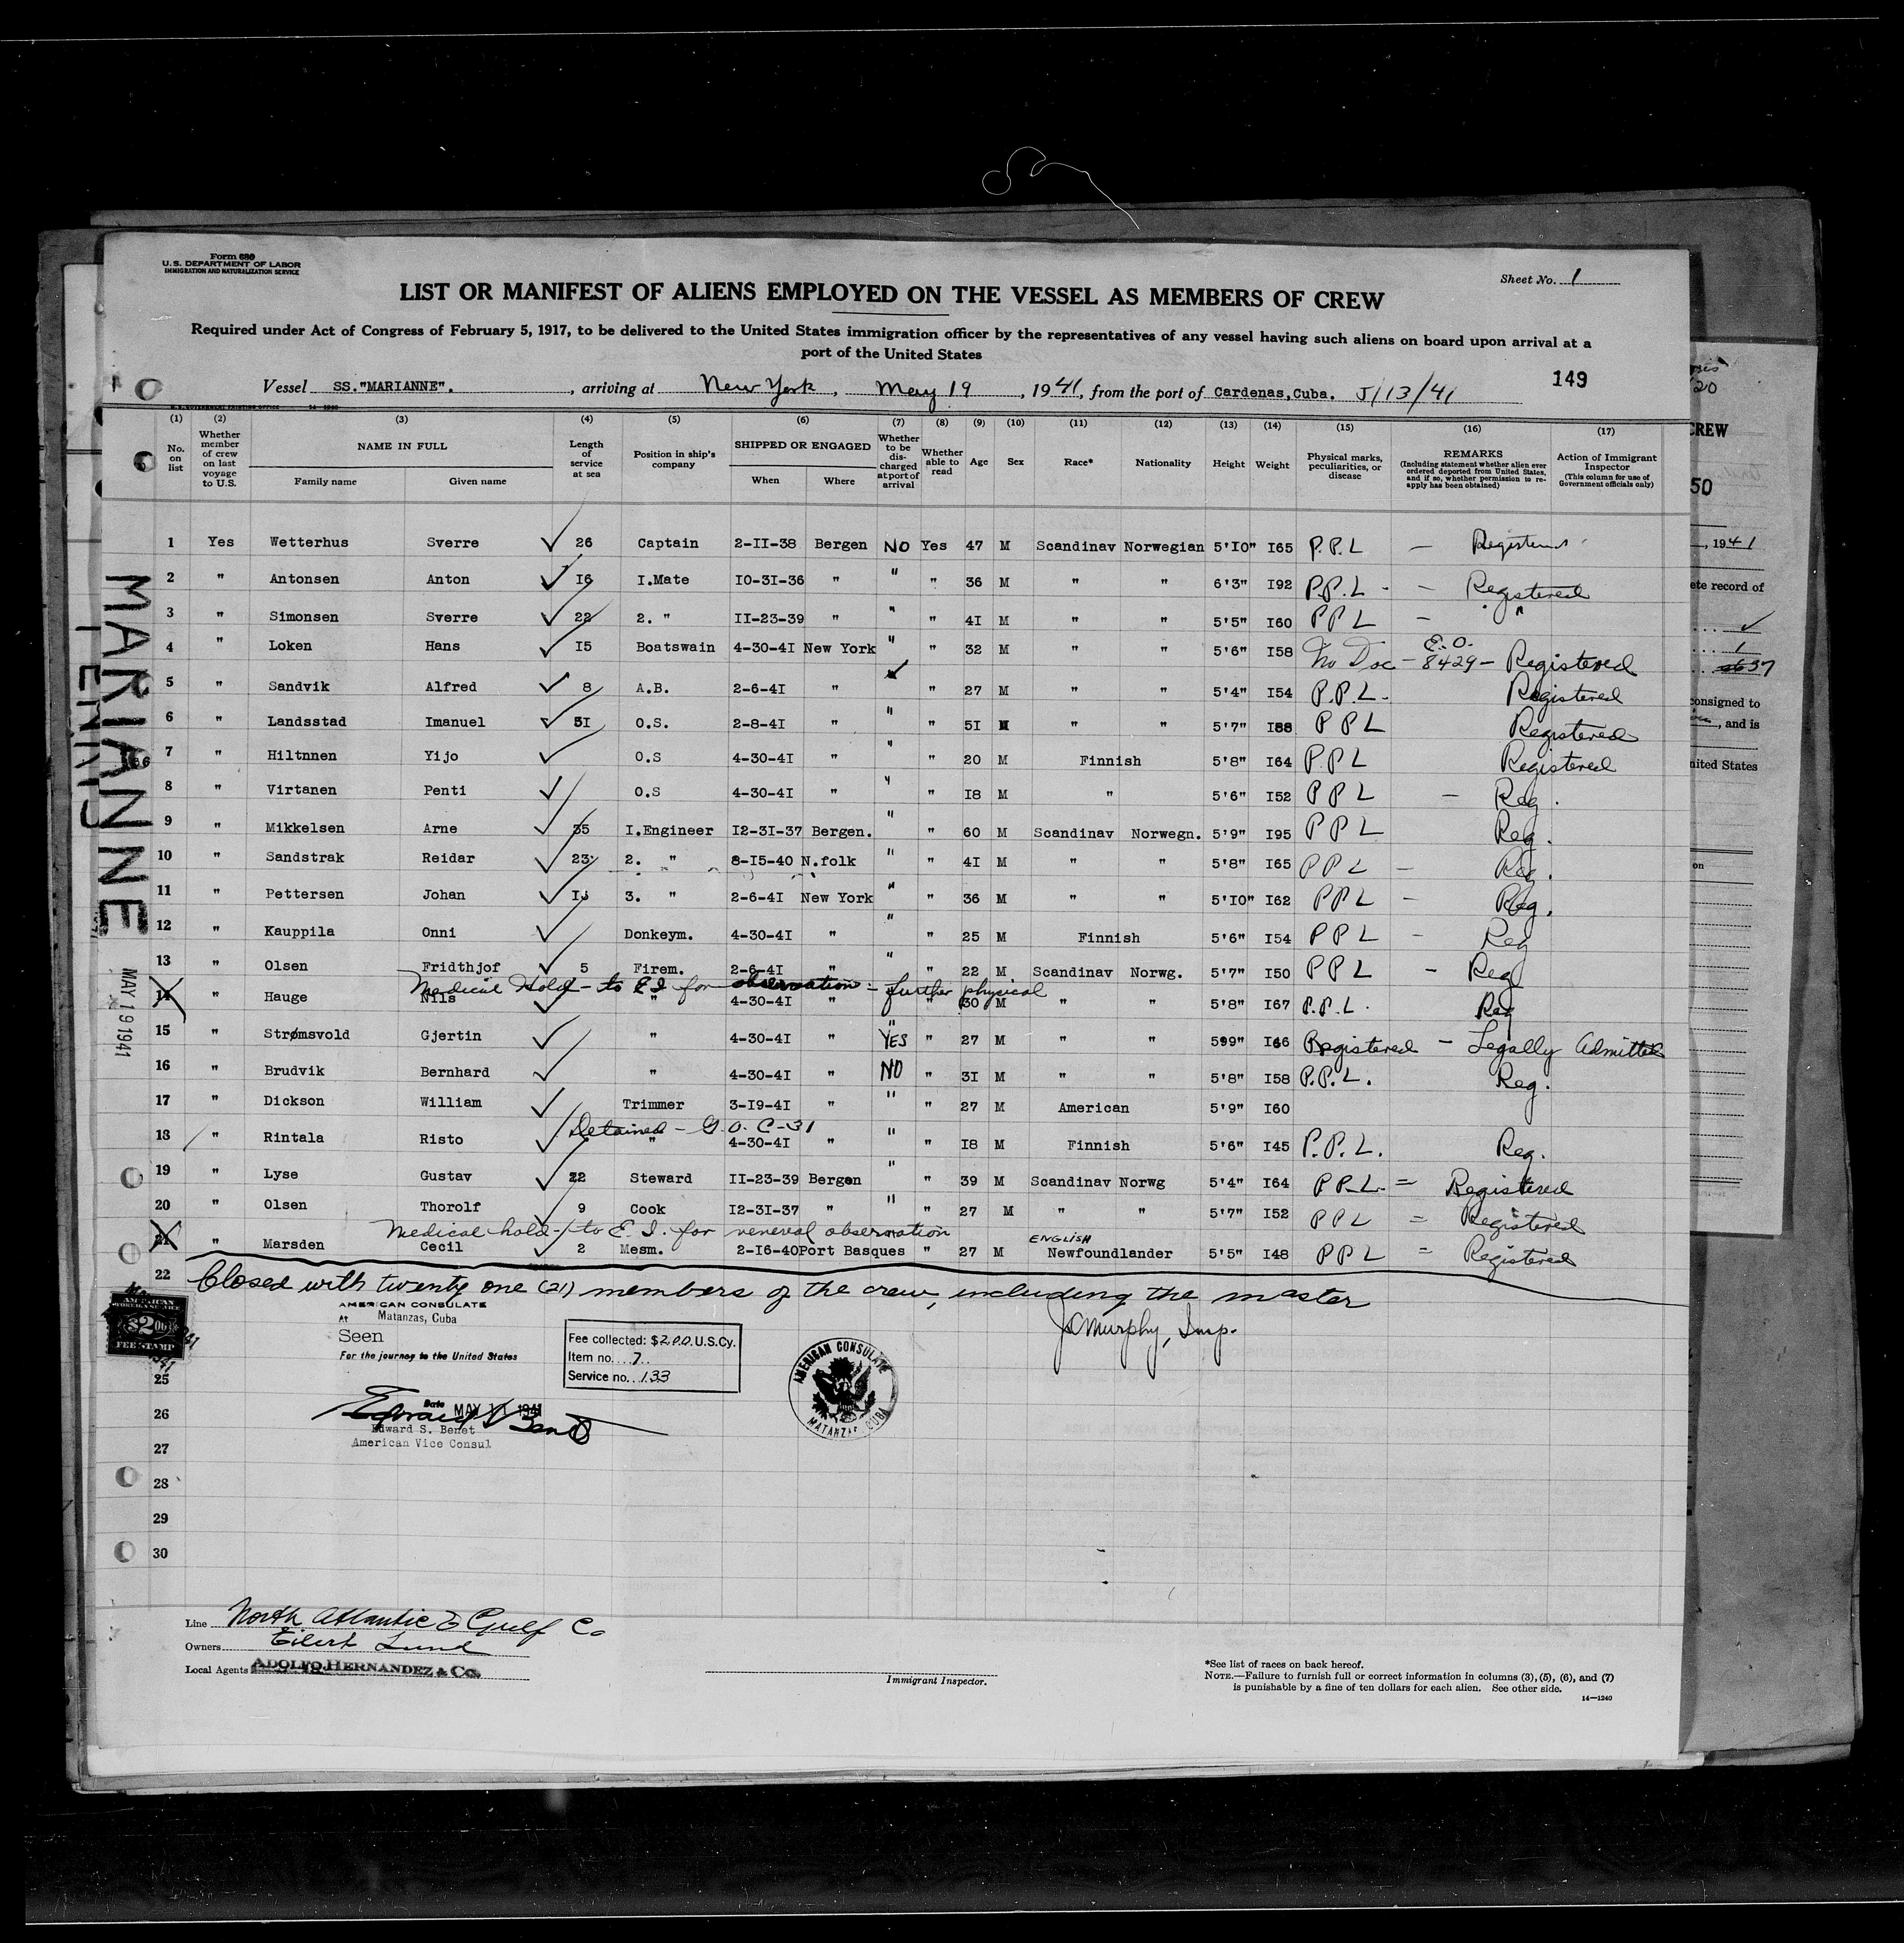 Form 680
U.S. DEPARTMENT OF LABOR
IMMIGRATION AND NATURALIZATION SERVICE
Sheet No. 1
LIST OR MANIFEST OF ALIENS EMPLOYED ON THE VESSEL AS MEMBERS OF CREW
Required under Act of Congress of February 5, 1917, to be delivered to the United States immigration officer by the representatives of any vessel having such aliens on board upon arrival at a
port of the United States
149
Vessel SS."MARIANNE". , arriving at New York , May 19 , 1941, from the port of Cardenas,Cuba. 5/13/41
(1) No. on list
(2) Whether member of crew on last voyage to U.S.
(3) NAME IN FULL Family name Given name
(4) Length of service at sea
(5) Position in ship's company
(6) SHIPPED OR ENGAGED When Where
(7) Whether to be discharged at port of arrival
(8) Whether able to read
(9) Age
(10) Sex
(11) Race*
(12) Nationality
(13) Height
(14) Weight
(15) Physical marks, peculiarities, or disease
(16) REMARKS (Including statement whether alien ever ordered deported from United States, and if so, whether permission to re-apply has been obtained)
(17) Action of Immigrant Inspector (This column for use of Government officials only)
1 Yes Wetterhus Sverre 26 Captain 2-II-38 Bergen NO Yes 47 M Scandinav Norwegian 5'IO" I65 P.P.L — Registered
2 " Antonsen Anton I6 I.Mate IO-3I-36 " " " 36 M " " 6'3" I92 P.P.L - — Registered
3 " Simonsen Sverre 22 2. " II-23-39 " " " 4I M " " 5'5" I60 P P L — " "
4 " Loken Hans I5 Boatswain 4-30-4I New York " " 32 M " " 5'6" I58 No Doc - E.O. 8429 - Registered
5 " Sandvik Alfred 8 A.B. 2-6-4I " " 27 M " " 5'4" I54 P.P.L. Registered
6 " Landsstad Imanuel 5I O.S. 2-8-4I " " " 5I M " " 5'7" I88 P P L Registered
7 " Hiltnnen Yijo O.S 4-30-4I " " " 20 M Finnish 5'8" I64 P.P L Registered
8 " Virtanen Penti O.S 4-30-4I " " " I8 M " 5'6" I52 P P L — Reg.
9 " Mikkelsen Arne 35 I.Engineer I2-3I-37 Bergen. " " 60 M Scandinav Norwegn. 5'9" I95 P P L Reg.
10 " Sandstrak Reidar 23 2. " 8-I5-40 N.folk " " 4I M " " 5'8" I65 P P L — Reg.
11 " Pettersen Johan 3. " 2-6-4I New York " " 36 M " " 5'IO" I62 P P L — Reg.
12 " Kauppila Onni Donkeym. 4-30-4I " " " 25 M Finnish 5'6" I54 P P L - Reg
13 " Olsen Fridthjof 5 Firem. 2-6-4I " " " 22 M Scandinav Norwg. 5'7" I50 P P L - Reg
Medical Hold - to E.I. for observation - further physical
14 " Hauge Nils " 4-30-4I " " 30 M " " 5'8" I67 P.P.L. Reg
15 " Strømsvold Gjertin " 4-30-4I " YES " 27 M " " 599" I46 Registered - Legally Admitted
16 " Brudvik Bernhard " 4-30-4I " NO " 3I M " " 5'8" I58 P.P.L. Reg.
17 " Dickson William Trimmer 3-I9-4I " " " 27 M American 5'9" I60
Detained - G.O. C-31
18 " Rintala Risto " 4-30-4I " " " I8 M Finnish 5'6" I45 P.P.L. Reg.
19 " Lyse Gustav 22 Steward II-23-39 Bergen " " 39 M Scandinav Norwg 5'4" I64 P P L = Registered
20 " Olsen Thorolf 9 Cook I2-3I-37 " " " 27 M " " 5'7" I52 P P L = Registered
Medical hold - to E.I. for venereal observation
21 " Marsden Cecil 2 Mesm. 2-I6-40 Port Basques " 27 M ENGLISH Newfoundlander 5'5" I48 P P L = Registered
22 Closed with twenty one (21) members of the crew, including the master
J C Murphy, Insp.
AMERICAN CONSULATE
At Matanzas, Cuba
Seen
For the journey to the United States
Date MAY 1941
Edward S. Benet
Edward S. Benet
American Vice Consul
Fee collected: $2.00 U.S.Cy.
Item no. 7
Service no. 133
AMERICAN CONSULATE
MATANZAS CUBA
AMERICAN
FOREIGN SERVICE
$2.00
FEE STAMP
25
26
27
28
29
30
MARIANNE
MAY 19 1941
Line North Atlantic & Gulf Co
Owners Eilert Lund
Local Agents ADOLFO HERNANDEZ & Co.
Immigrant Inspector.
*See list of races on back hereof.
NOTE.—Failure to furnish full or correct information in columns (3), (5), (6), and (7)
is punishable by a fine of ten dollars for each alien. See other side.
14—1240
CREW
50
, 1941
ete record of
1
37
consigned to
, and is
nited States
on